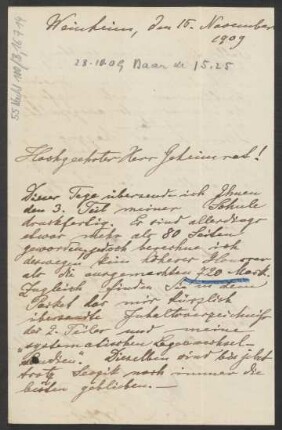 Weinheim, den 15. November
1909
Hochgeehrter Herr Geheimrat!
Dieser Tage übersende ich Ihnen
den 3. Teil meiner Schule
druckfertig. Es sind allerdings
etwas mehr als 80 Seiten
geworden, jedoch berechne ich
deswegen kein höheres Honorar
als die ausgemachten 720 Mark.
Zugleich finden Sie in dem
Paket das mir kürzlich
übersandte Inhaltsverzeichnis
des 2. Teiles und meine
systematischen Lagenwechsel-
Studien. Dieselben sind bis jetzt
trotz Sevcik noch immer die
besten geblieben.—